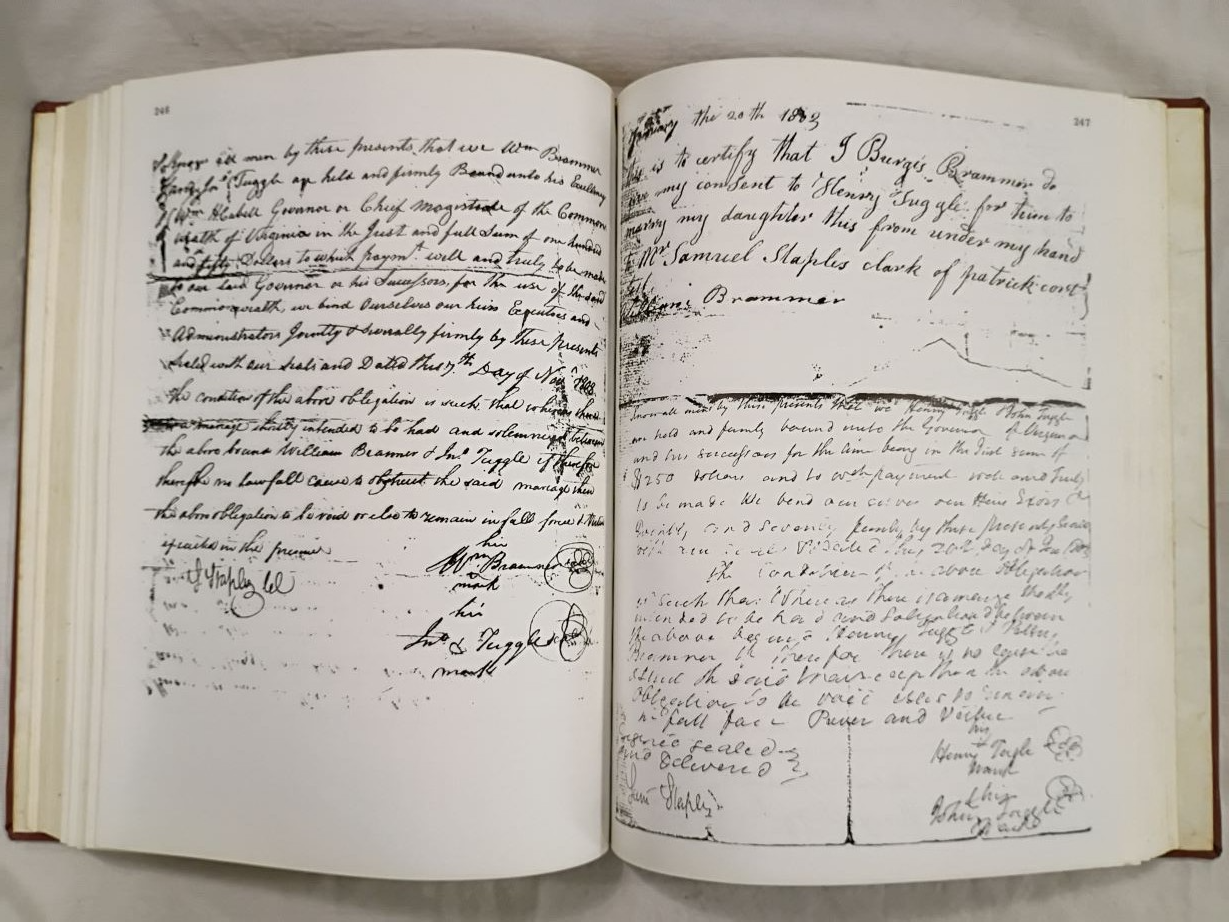 246
Know all men by these presents that we Wm Brammer
and Jno Tuggle are held and firmly Bound unto his Excellency
Wm H Cabell Govenor or Chief Magistrate of the Common
wealth of Virginia in the Just and full Sum of one hundred
and fifty Dollars to which paymt. well and truly to be made
to our said Govenor or his Successors, for the use of the said
Commonwealth, we bind Ourselves our heirs Executors and
Administrators Jointly & severally firmly by these presents
Sealed with our seals and Dated this 7th Day of Nov
the condition of the above obligation is such that whereas there
a marriage shortly intended to be had and solemnized between
the above bound William Brammer & Jno. Tuggle if therefore
therefore no Lawfull cause to obstruct the said marriage then
the above obligation to be void or else to remain in full force & Virtue
his
Wm Brammer seal
mark
S Staples
his
Jno Tuggle seal
mark
247
January the 20th 1803
this is to certify that I Burgis Brammer do
give my consent to Henry Tuggle for him to
marry my daughter this from under my hand
to Mr Samuel Staples clark of patrick cont
Brammer
Know all men by these presents that we Henry Tuggle John Tuggle
are held and firmly bound unto the Governor of Virginia
and his successors for the time being in the Just sum of
$250 Dollars and to wch payment well and truly
to be made We bend our selves our Heirs Exors &
Jointly and severly firmly by these presents
this 20th Day of
The Condition of the above Obligation
is Such that Whereas There is a marriage shortly
intended to be had and Solemnized between
the above Henry Tuggle &
Brammer if Therefor there is no
the said then the above
Obligation to be void else to remain
in full force Power and Vertue
sealed
and Delivered
his
Henry Tugle
mark
Sam Staples
his
John Tuggle
mark